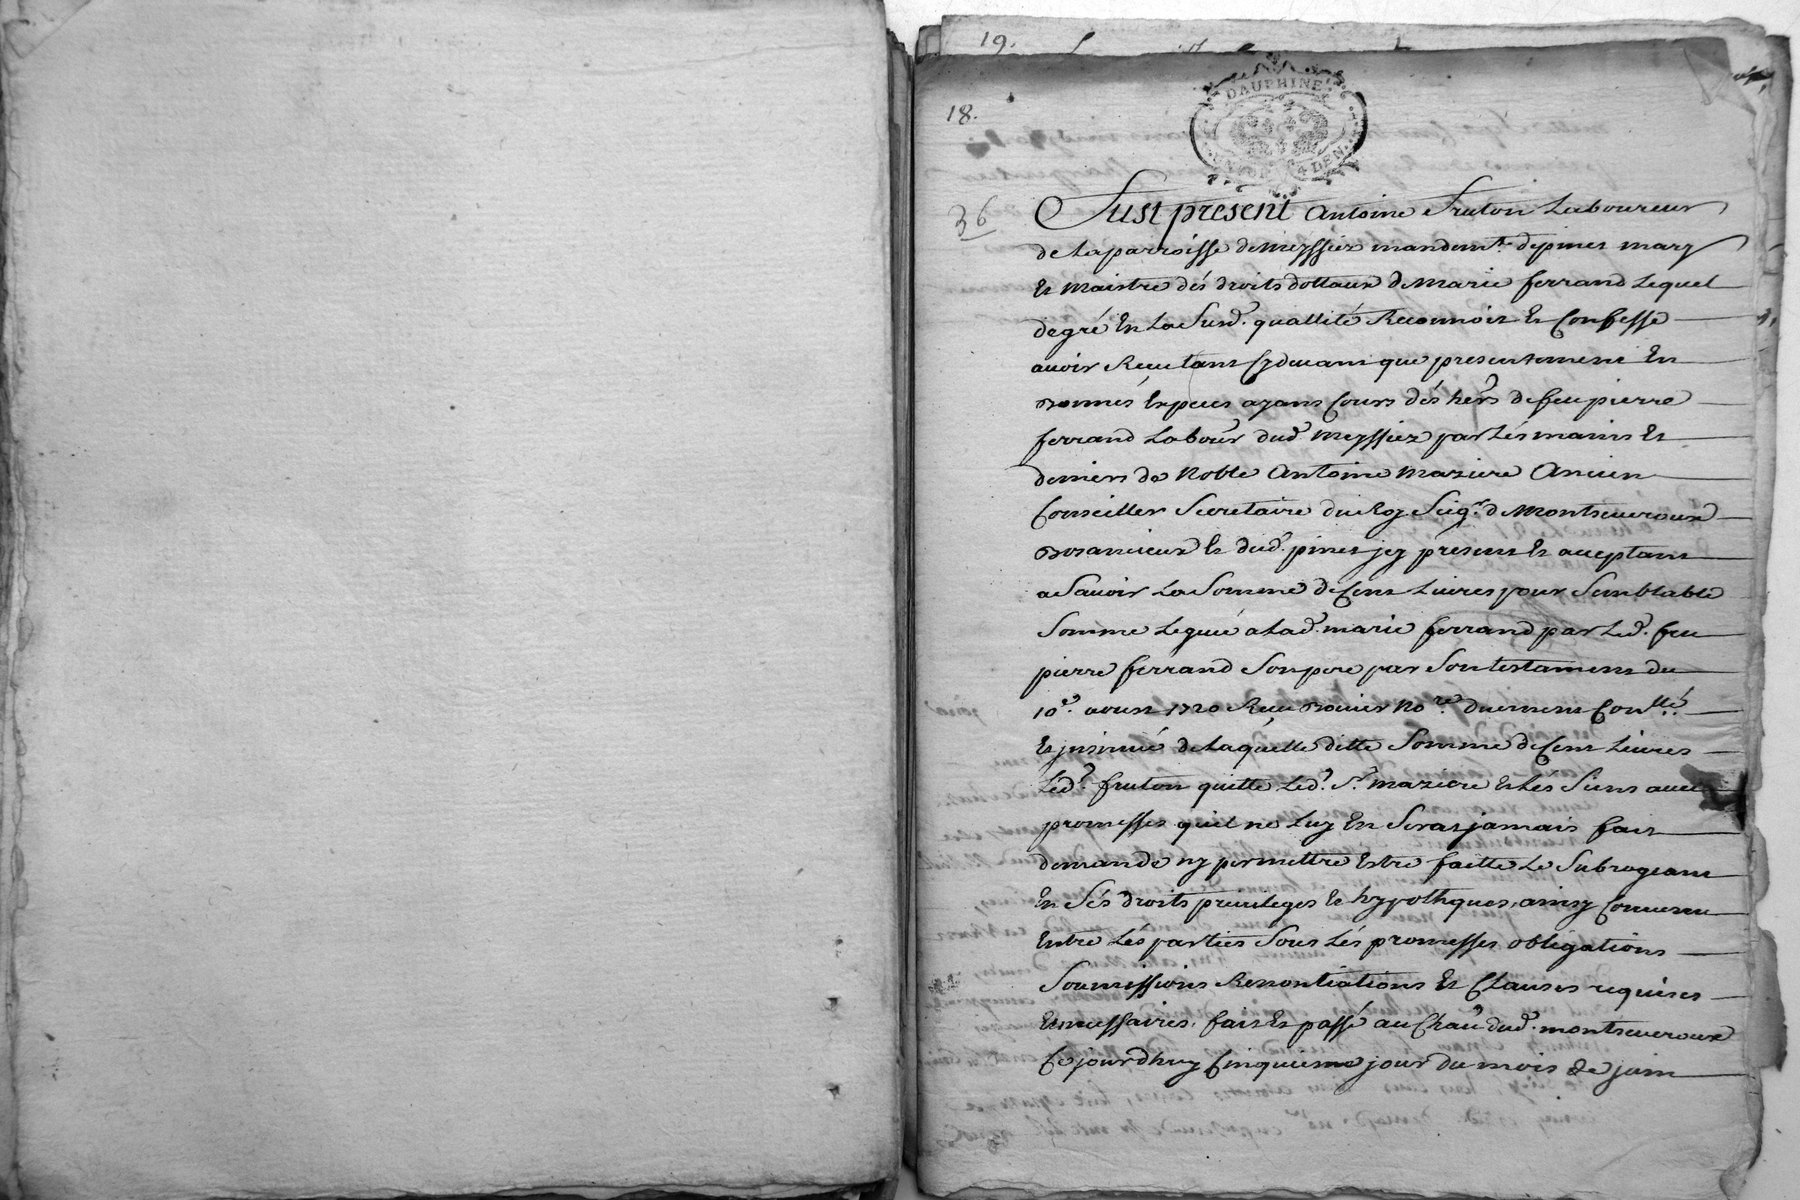 19.
DAUPHINE
4 DEN.
18.
36
Fust present Antoine Fruton Laboureur
de La parroisse de Meyssiez mandemt. depines mary
Et Maistre dés droits dottaux de Marie ferrand Lequel
degré En La Susd. quallité Reconnoit Et Confesse
avoir Receu tant Cydevant que presentement En
Et peces ayant Cours dés hers. de feu pierre
ferrand Labour. dud. Meyssiez par Lés mains Et
deniers de Noble Antoine Maziere Ancien
Conseiller Secretaire du Roy Seigr. de Montseveroux
Et dud. pines jcy présent Et aceptant
a Savoir La Somme de Cent Livres pour Semblable
Somme Leguée a Lad. marie ferrand par Led. feu
pierre ferrand Son pere par Son testament du
10e. aoust 1720 Receu Nore. duement Conllé.
Et jnsinué de Laquelle ditte Somme de Cent Livres
Led. fruton quitte Led. Sr. Maziere Et Lés Siens avec
promesses quil ne Luy En Sera jamais fait
demande ny permettre Estre faitte Le Subrogeant
En Sés droits privileges Et hypothques, ainsy Convenu
Entre Lés parties Sous Lés promesses obligations
Soumissions Renontiations Et Clauses requises
Et necessaires. fait Et passé au Chau. dud. montseveroux
Ce jourdhuy Cinquieme jour du mois de juin